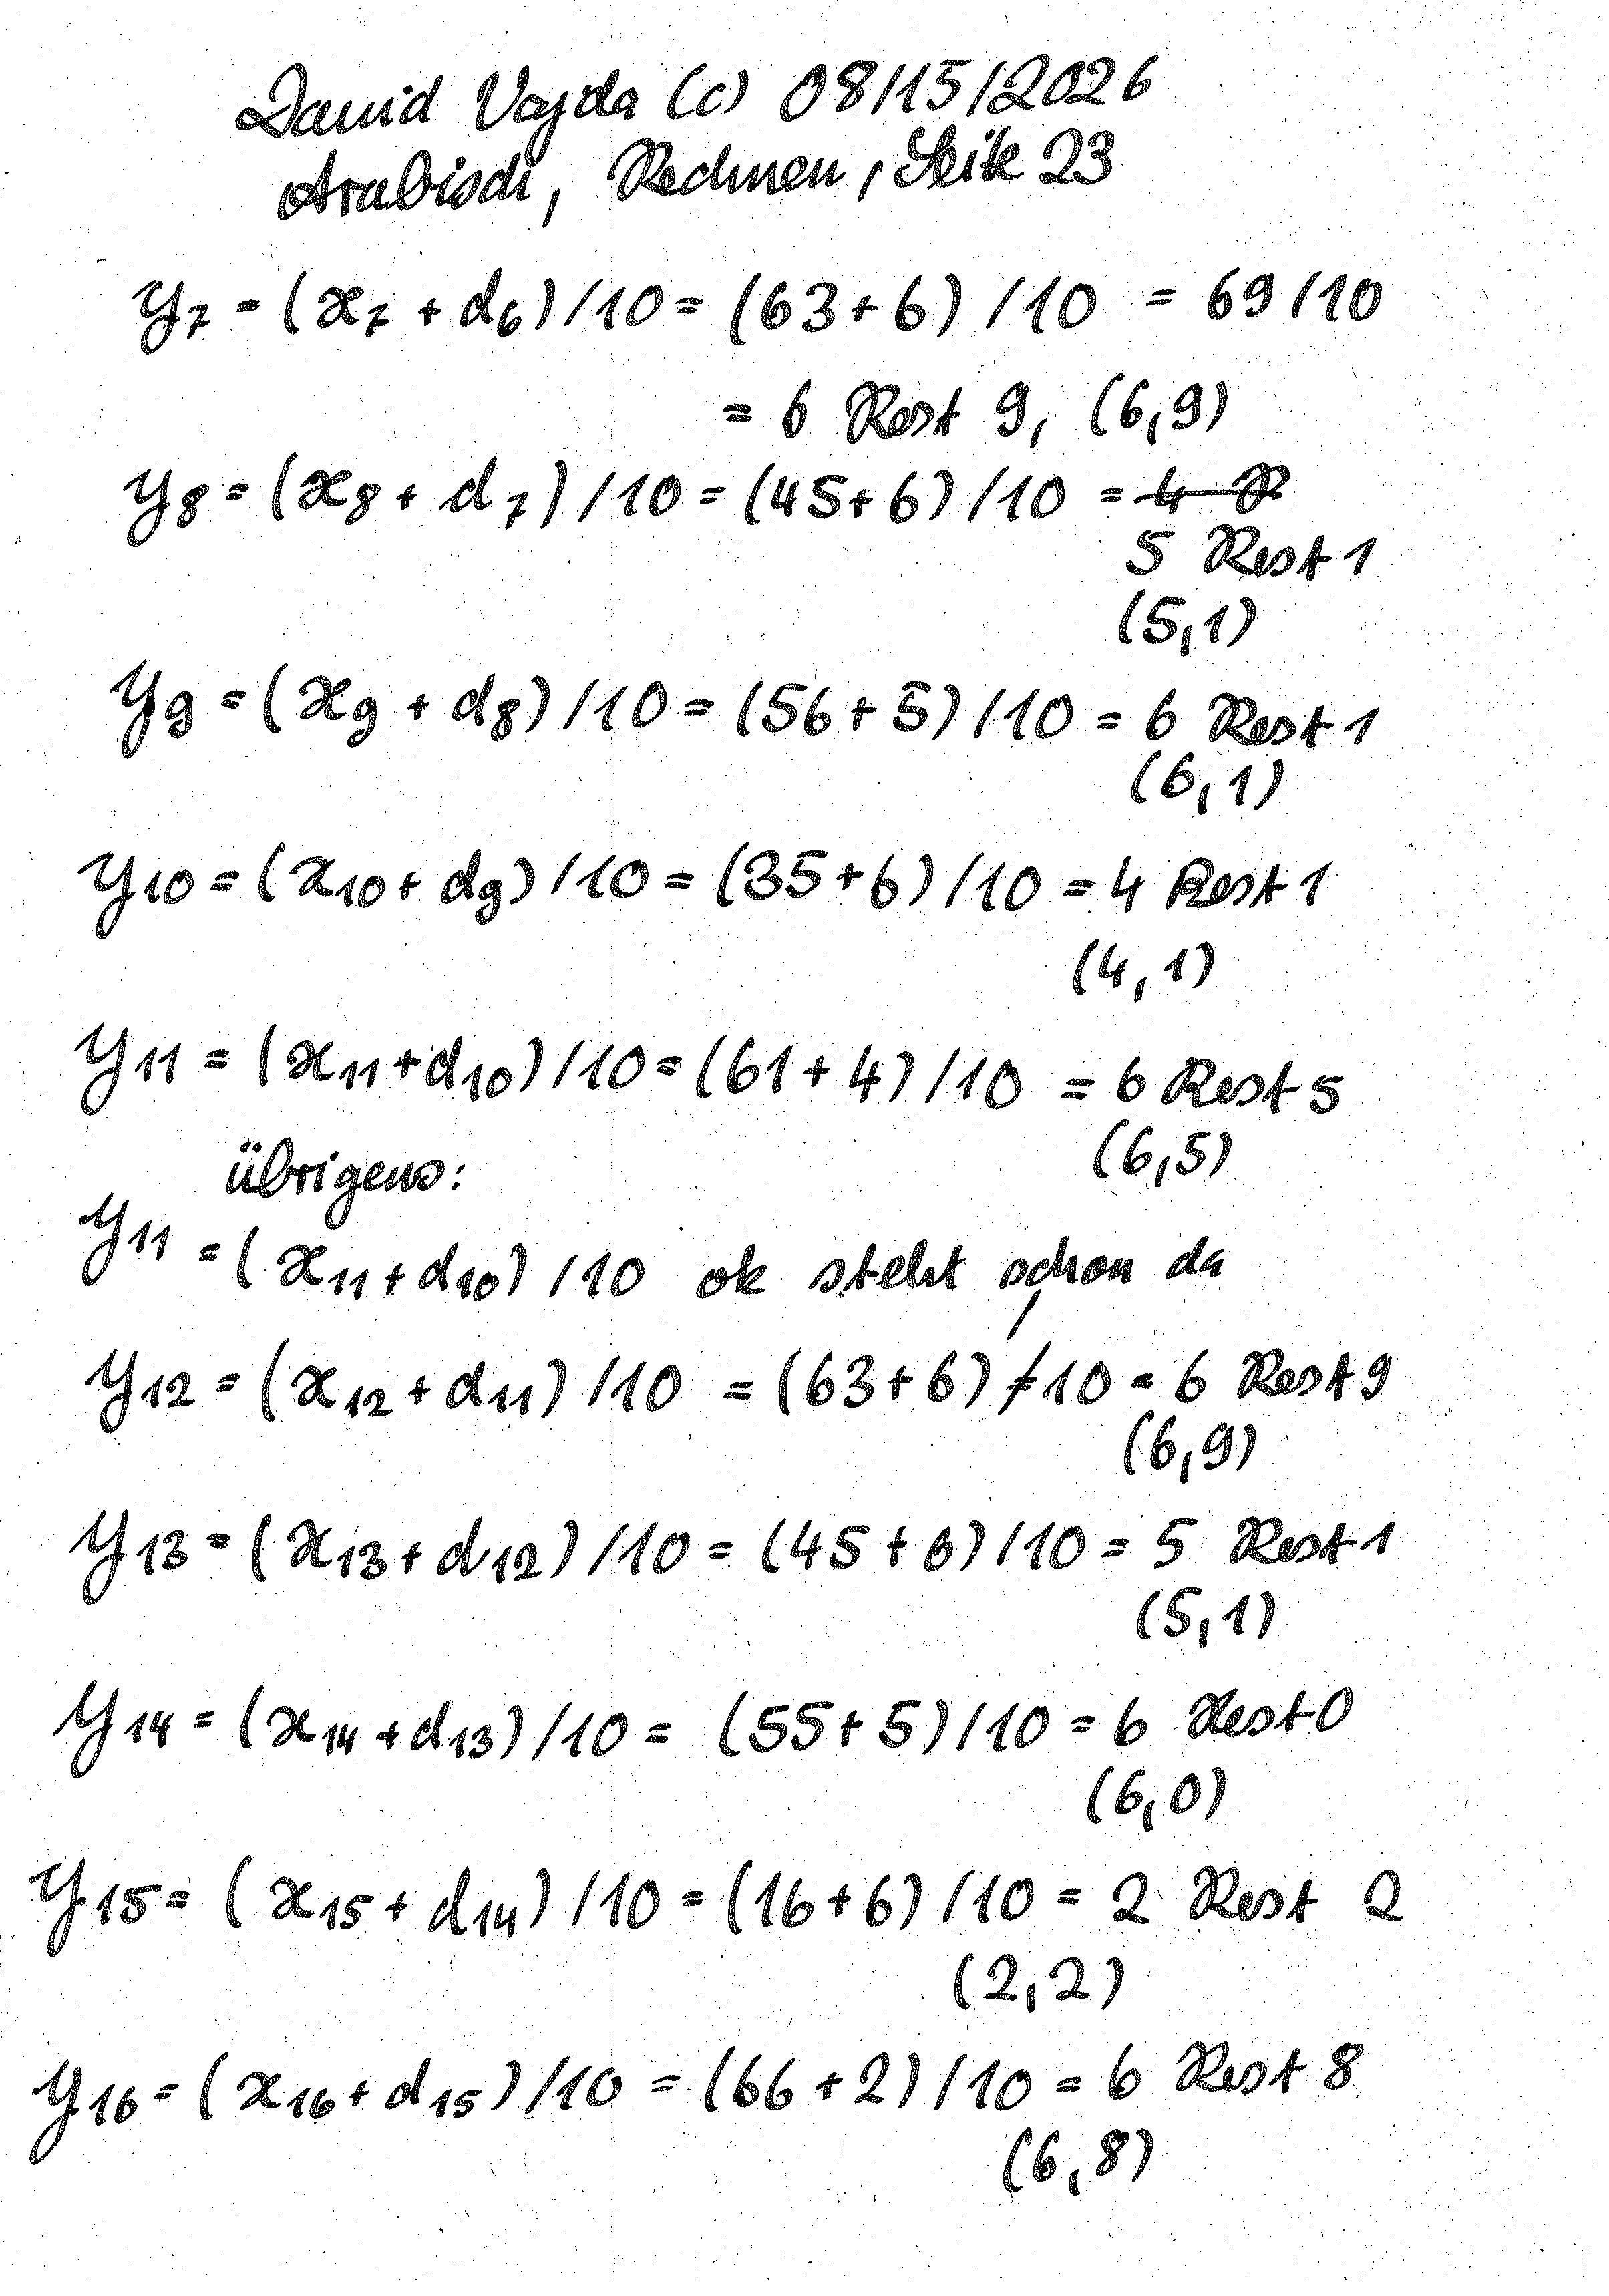 David Vajda (c) 08/15/2026
Arabisch, Rechnen, Seite 23
y₇ = (x₇ + d₆)/10 = (63+6)/10 = 69/10
= 6 Rest 9, (6,9)
y₈ = (x₈ + d₇)/10 = (45+6)/10 = 4 R
5 Rest 1
(5,1)
y₉ = (x₉ + d₈)/10 = (56+5)/10 = 6 Rest 1
(6,1)
y₁₀ = (x₁₀ + d₉)/10 = (35+6)/10 = 4 Rest 1
(4,1)
y₁₁ = (x₁₁+d₁₀)/10 = (61+4)/10 = 6 Rest 5
(6,5)
übrigens:
y₁₁ = (x₁₁+d₁₀)/10 ok steht schon da
y₁₂ = (x₁₂+d₁₁)/10 = (63+6)/10 = 6 Rest 9
(6,9)
y₁₃ = (x₁₃+d₁₂)/10 = (45+6)/10 = 5 Rest 1
(5,1)
y₁₄ = (x₁₄+d₁₃)/10 = (55+5)/10 = 6 Rest 0
(6,0)
y₁₅ = (x₁₅+d₁₄)/10 = (16+6)/10 = 2 Rest 2
(2,2)
y₁₆ = (x₁₆+d₁₅)/10 = (66+2)/10 = 6 Rest 8
(6,8)